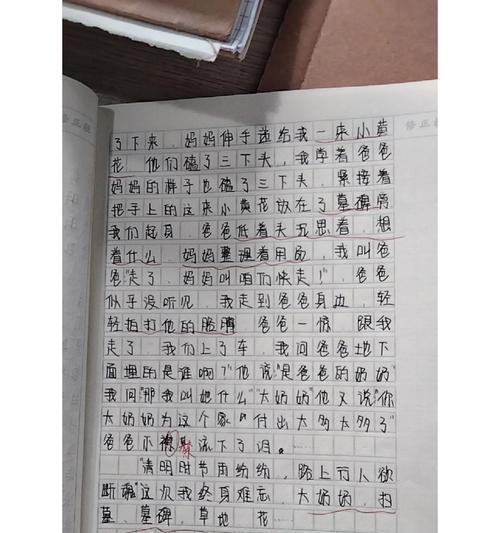 修正栏
修正
了下来，妈妈伸手递给我一束小黄
花，他们磕了三下头，我学着爸爸
妈妈的样子也磕了三下头，紧接着
把手上的这束小黄花放在了墓碑旁
我们起身，爸爸低着头沉思着，想
着什么，妈妈整理着用品，我叫爸
爸"走了，妈妈叫咱们快走！"，爸爸
似乎没听见，我走到爸爸身边，轻
轻拍打他的胳膊，爸爸一惊，跟我
走了，我们上了车，我问爸爸地下
面埋的是谁啊？"他说"是爸爸的奶奶"
我问"那我叫她什么"太奶奶"他又说"你
太奶奶为这个家"付出太多太多了"
爸爸不禁流下了泪。
禁
"清明时节雨纷纷，路上行人欲
断魂"这次我终身难忘，太奶奶，扫
墓、墓碑，草地 花